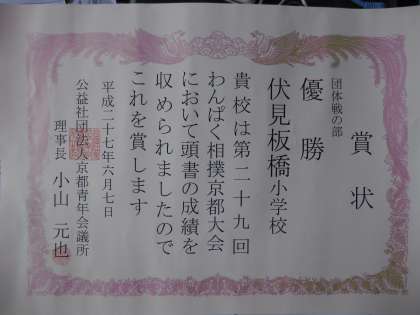 賞状
団体戦の部
優勝
伏見板橋小学校
貴校は第二十九回
わんぱく相撲京都大会
において頭書の成績を
収められましたので
これを賞します
平成二十七年六月七日
公益社団法人京都青年会議所
理事長 小山 元也